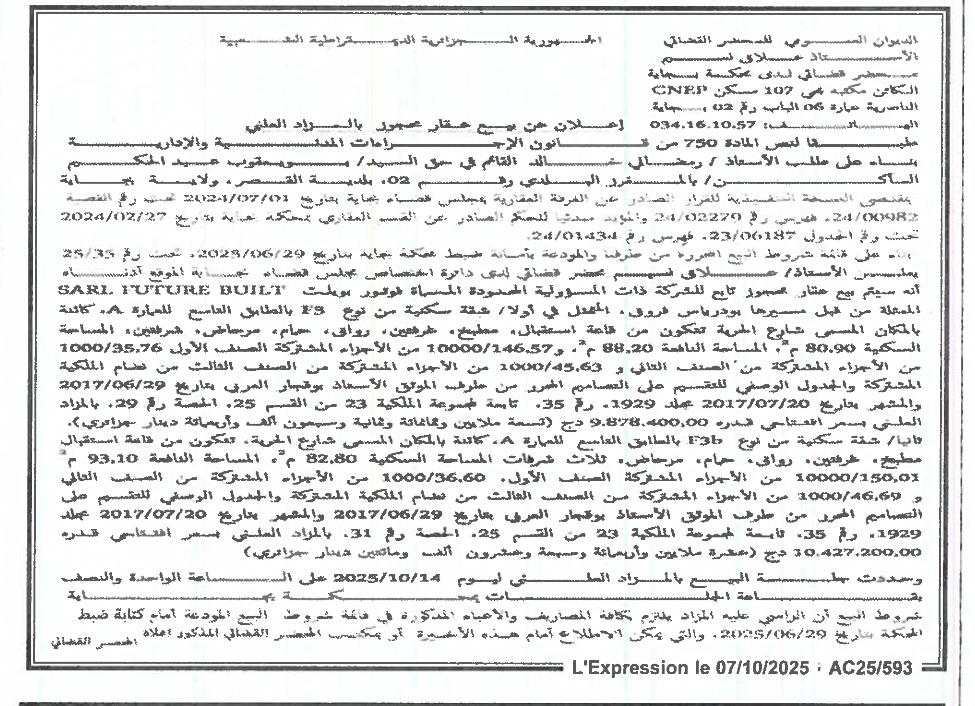 الجمهورية الجزائرية الديمقراطية الشعبية
الديوان العمومي للمحضر القضائي
الأستاذ علاق نسيم
محضر قضائي لدى محكمة بجاية
الكائن مكتبه بحي 107 مسكن CNEP
الناصرية عمارة 06 الباب رقم 02 بجاية
الهاتف: 034.16.10.57
إعلان عن بيع عقار محجوز بالمزاد العلني
طبقا لنص المادة 750 من قانون الإجراءات المدنية والإدارية
بناء على طلب الأستاذ / رمضاني خالد القائم في حق السيد/ بويعقوب عبد الحكيم
الساكن/ بالمقرر البلدي رقم 02، بلدية القصر، ولاية بجاية
بمقتضى النسخة التنفيذية للقرار الصادر عن الغرفة العقارية بمجلس قضاء بجاية بتاريخ 2024/07/01 تحت رقم القضية
24/00982، فهرس رقم 24/02279 والمؤيد مبدئيا للحكم الصادر عن القسم العقاري بمحكمة بجاية بتاريخ 2024/02/27
تحت رقم الجدول 23/06187، فهرس رقم 24/01434.
بناء على قائمة شروط البيع المحررة من طرفنا والمودعة بأمانة ضبط محكمة بجاية بتاريخ 2025/06/29، تحت رقم 25/35
يعلن الأستاذ/ علاق نسيم محضر قضائي لدى دائرة اختصاص مجلس قضاء بجاية الموقع أدناه
أنه سيتم بيع عقار محجوز تابع للشركة ذات المسؤولية المحدودة المسماة فوتور بويلت SARL FUTURE BUILT
الممثلة من قبل مسيرها بودرياس فروق، المتمثل في أولا/ شقة سكنية من نوع F3 بالطابق التاسع للعمارة A، كائنة
بالمكان المسمى شارع الحرية تتكون من قاعة استقبال، مطبخ، غرفتين، رواق، حمام، مرحاض، شرفتين، المساحة
السكنية 80.90 م²، المساحة النافعة 88.20 م²، و10000/146.57 من الأجزاء المشتركة الصنف الأول 1000/35.76
من الأجزاء المشتركة من الصنف الثاني و 1000/45.63 من الأجزاء المشتركة من الصنف الثالث من نظام الملكية
المشتركة والجدول الوصفي للتقسيم على التصاميم المحرر من طرف الموثق الأستاذ بوقجار العربي بتاريخ 2017/06/29
والمشهر بتاريخ 2017/07/20 مجلد 1929، رقم 35، تابعة لمجموعة الملكية 23 من القسم 25، الحصة رقم 29، بالمزاد
العلني بسعر افتتاحي قدره 9.878.400.00 دج (تسعة ملايين وثمانمائة وثمانية وسبعون ألف وأربعمائة دينار جزائري).
ثانيا/ شقة سكنية من نوع F3b بالطابق التاسع للعمارة A، كائنة بالمكان المسمى شارع الحرية، تتكون من قاعة استقبال
مطبخ، غرفتين، رواق، حمام، مرحاض، ثلاث شرفات المساحة السكنية 82.80 م²، المساحة النافعة 93,10 م²
10000/150,01 من الأجزاء المشتركة الصنف الأول، 1000/36.60 من الأجزاء المشتركة من الصنف الثاني
و 1000/46.69 من الأجزاء المشتركة من الصنف الثالث من نظام الملكية المشتركة والجدول الوصفي للتقسيم على
التصاميم المحرر من طرف الموثق الأستاذ بوقجار العربي بتاريخ 2017/06/29 والمشهر بتاريخ 2017/07/20 مجلد
1929، رقم 35، تابعة لمجموعة الملكية 23 من القسم 25، الحصة رقم 31، بالمزاد العلني بسعر افتتاحي قدره
10.427.200.00 دج (عشرة ملايين وأربعمائة وسبعة وعشرون ألف ومائتين دينار جزائري)
وحددت جلسة البيع بالمزاد العلني ليوم 2025/10/14 على الساعة الواحدة والنصف
بقاعة الجلسات بمحكمة بجاية
شروط البيع أن الراسي عليه المزاد يلتزم بكافة المصاريف والأعباء المذكورة في قائمة شروط البيع المودعة أمام كتابة ضبط
المحكمة بتاريخ 2025/06/29، والتي يمكن الاطلاع أمام هذه الأخيرة أو بمكتب المحضر القضائي المذكور أعلاه
المحضر القضائي
L'Expression le 07/10/2025 : AC25/593